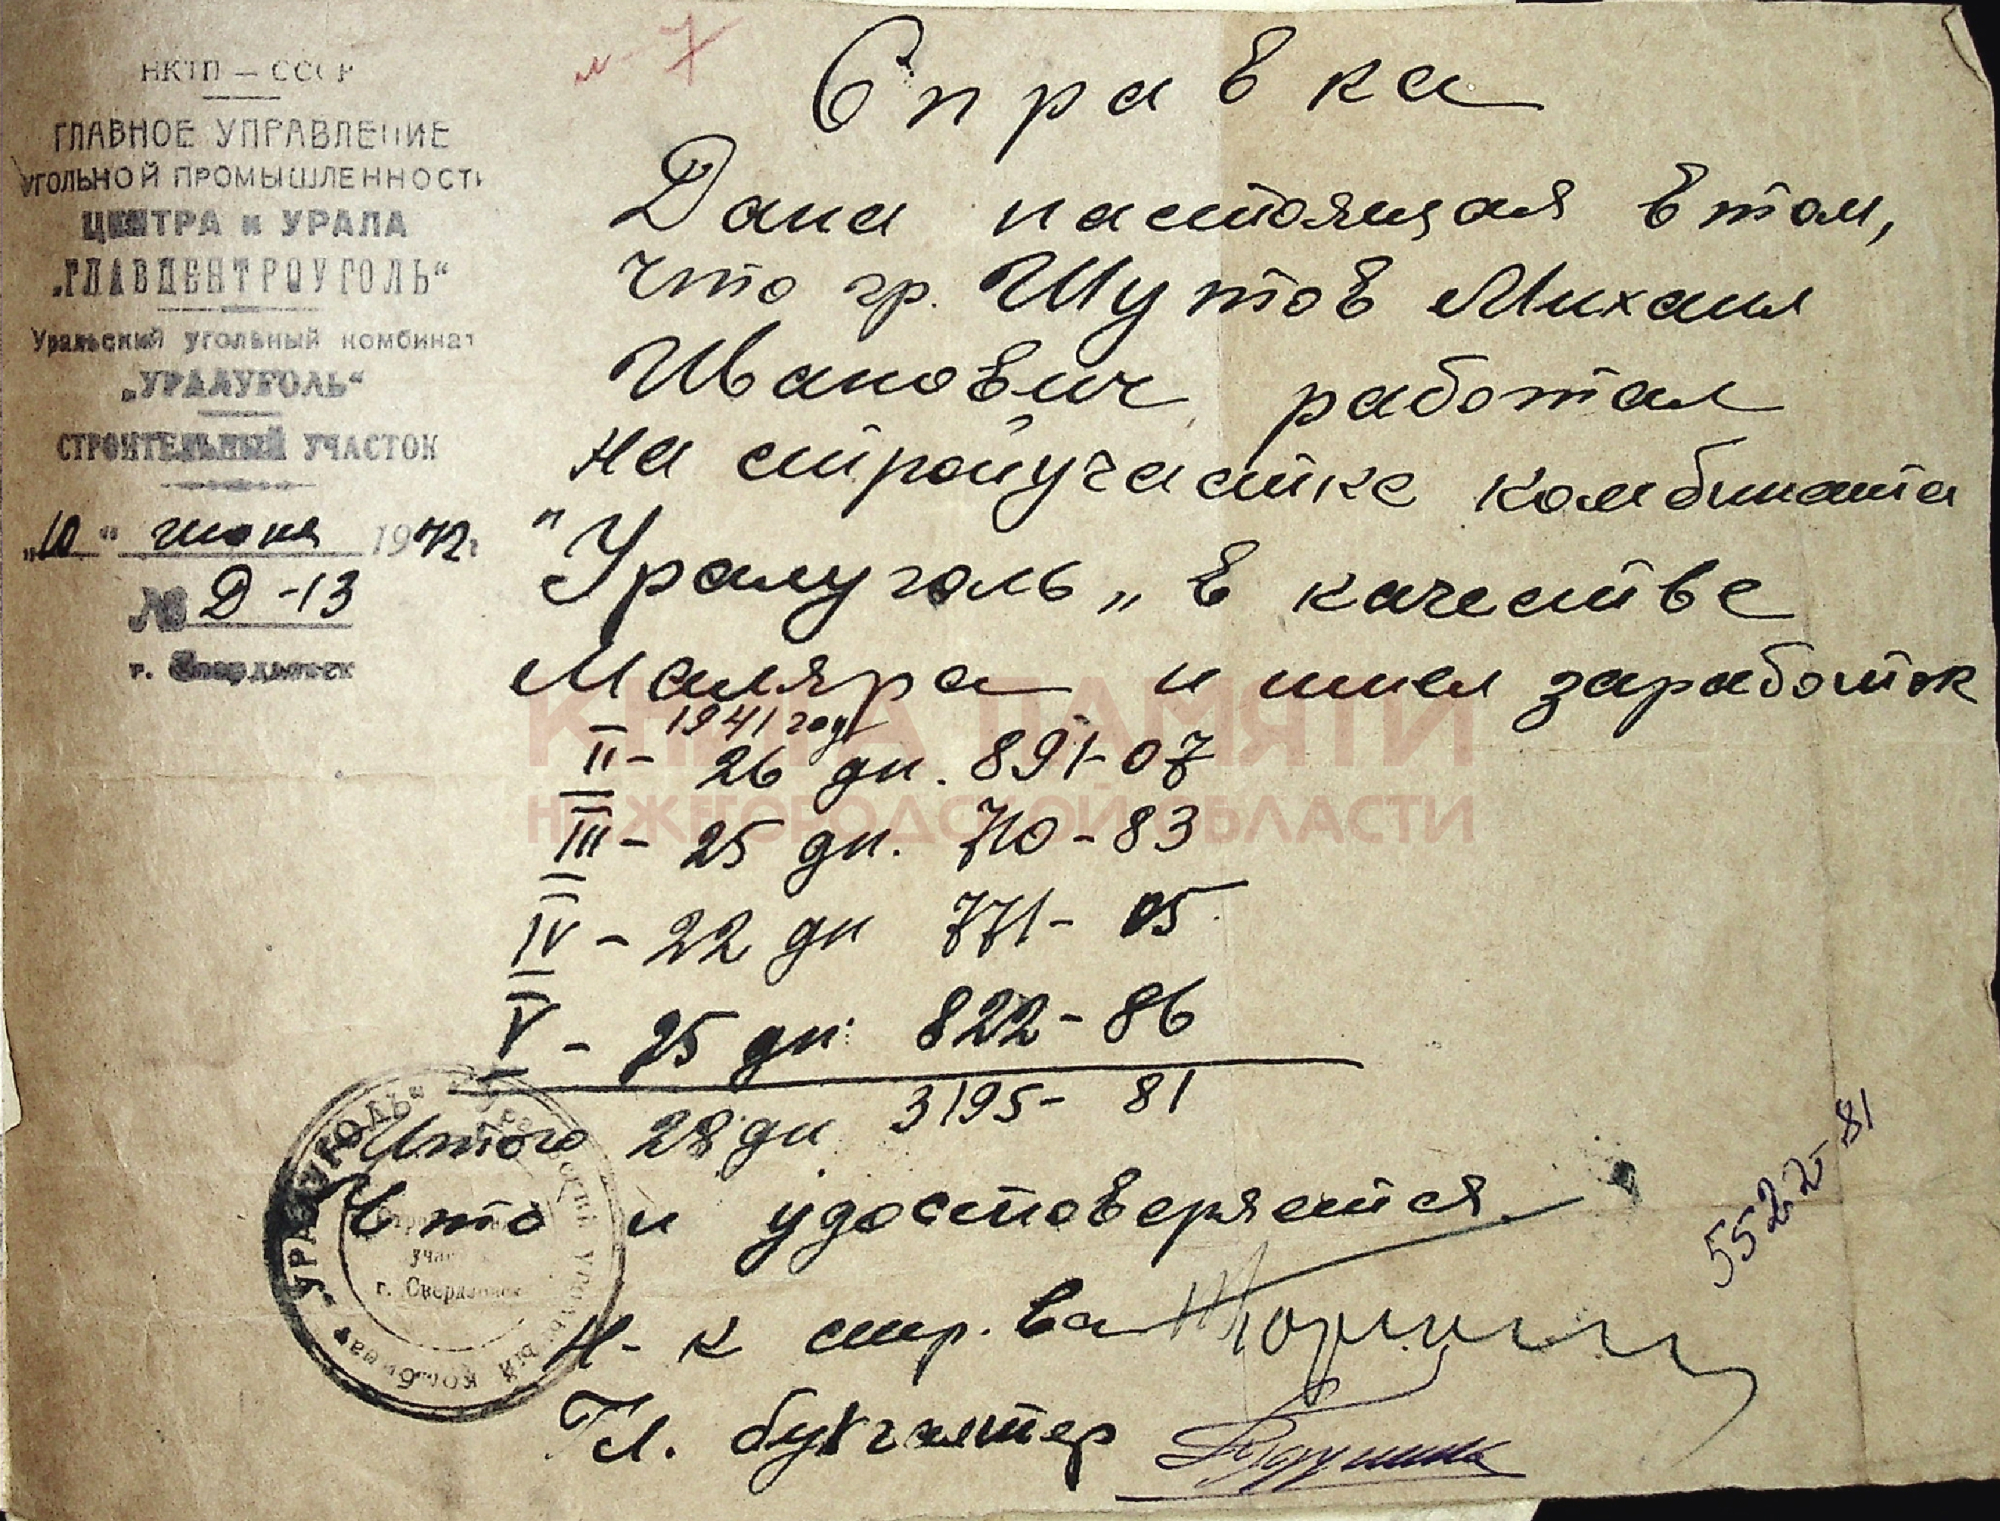 НКТП — СССР
ГЛАВНОЕ УПРАВЛЕНИЕ
УГОЛЬНОЙ ПРОМЫШЛЕННОСТИ
ЦЕНТРА и УРАЛА
„ГЛАВЦЕНТРОУГОЛЬ“
Уральский угольный комбинат
„УРАЛУГОЛЬ“
СТРОИТЕЛЬНЫЙ УЧАСТОК
„10“ июня 1942г.
№ Д-13
г. Свердловск
м-7
Справка
Дана настоящая в том,
что гр. Шутов Михаил
Иванович работал
на стройучастке комбината
"Уралуголь„ в качестве
Маляра и имел заработок
1941 году
II - 26 дн. 891-07
III - 25 дн. 710-83
IV - 22 дн 771-05
V - 25 дн. 822-86
Итого 28 дн 3195-81
Что и удостоверяется.
Н-к стр.-ва
Гл. бухгалтер
5522-81
„УРАЛУГОЛЬ“
угольный комбинат
участок
г. Свердловск
КНИГА ПАМЯТИ
НИЖЕГОРОДСКОЙ ОБЛАСТИ